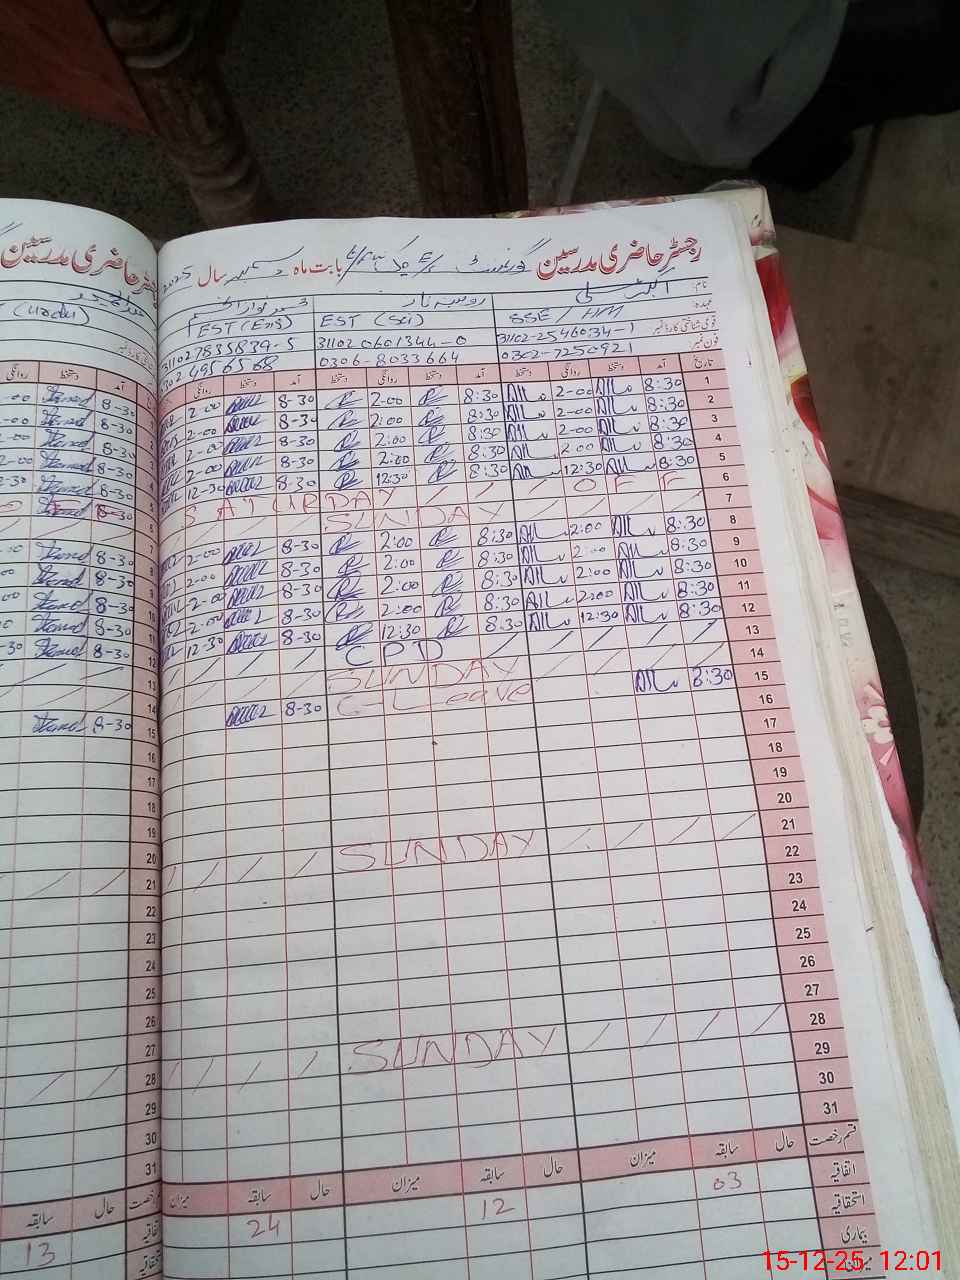 رجسٹر حاضری مدرسین گورنمنٹ بابت ماہ دسمبر سال 2025
نام:
عہدہ: SSE / HM EST (Sci) EST (Eng)
قومی شناختی کارڈ نمبر 31102-2546034-1 31102 0601344-0 311027835839-5
فون نمبر: 0302-7250921 0306-8033664 0302 4956568
تاریخ آمد دستخط روانگی دستخط آمد دستخط روانگی دستخط آمد دستخط روانگی
1 8:30 2-00 8:30 2-00 8-30 2-00
2 8:30 2-00 8:30 2:00 8-30 2-00
3 8:30 2-00 8:30 2:00 8-30 2-00
4 8:30 2:00 8:30 2:00 8-30 2-00
5 8:30 12:30 8:30 12:30 8-30 12-30
6 SATURDAY / / / OFF
7 SUNDAY
8 8:30 2:00 8:30 2:00 8-30 2-00
9 8:30 2:00 8:30 2:00 8-30 2-00
10 8:30 2:00 8:30 2:00 8-30 2-00
11 8:30 2:00 8:30 2:00 8-30 2-00
12 8:30 12:30 8:30 12:30 8-30 12-30
13 CPD
14 SUNDAY
15 8:30 C-Leave 8-30
16
17
18
19
20
21 SUNDAY
22
23
24
25
26
27
28 SUNDAY
29
30
31
قسم رخصت حال سابقہ میزان حال سابقہ میزان حال سابقہ میزان
اتفاقیہ 03 12 24
استحقاقیہ
بیماری
میزان
رجسٹر حاضری مدرسین
آمد دستخط روانگی
8-30
8-30
8-30
8-30
8-30
8-30
8-30
8-30
8-30
8-30
8-30
حال سابقہ
13
15-12-25, 12:01